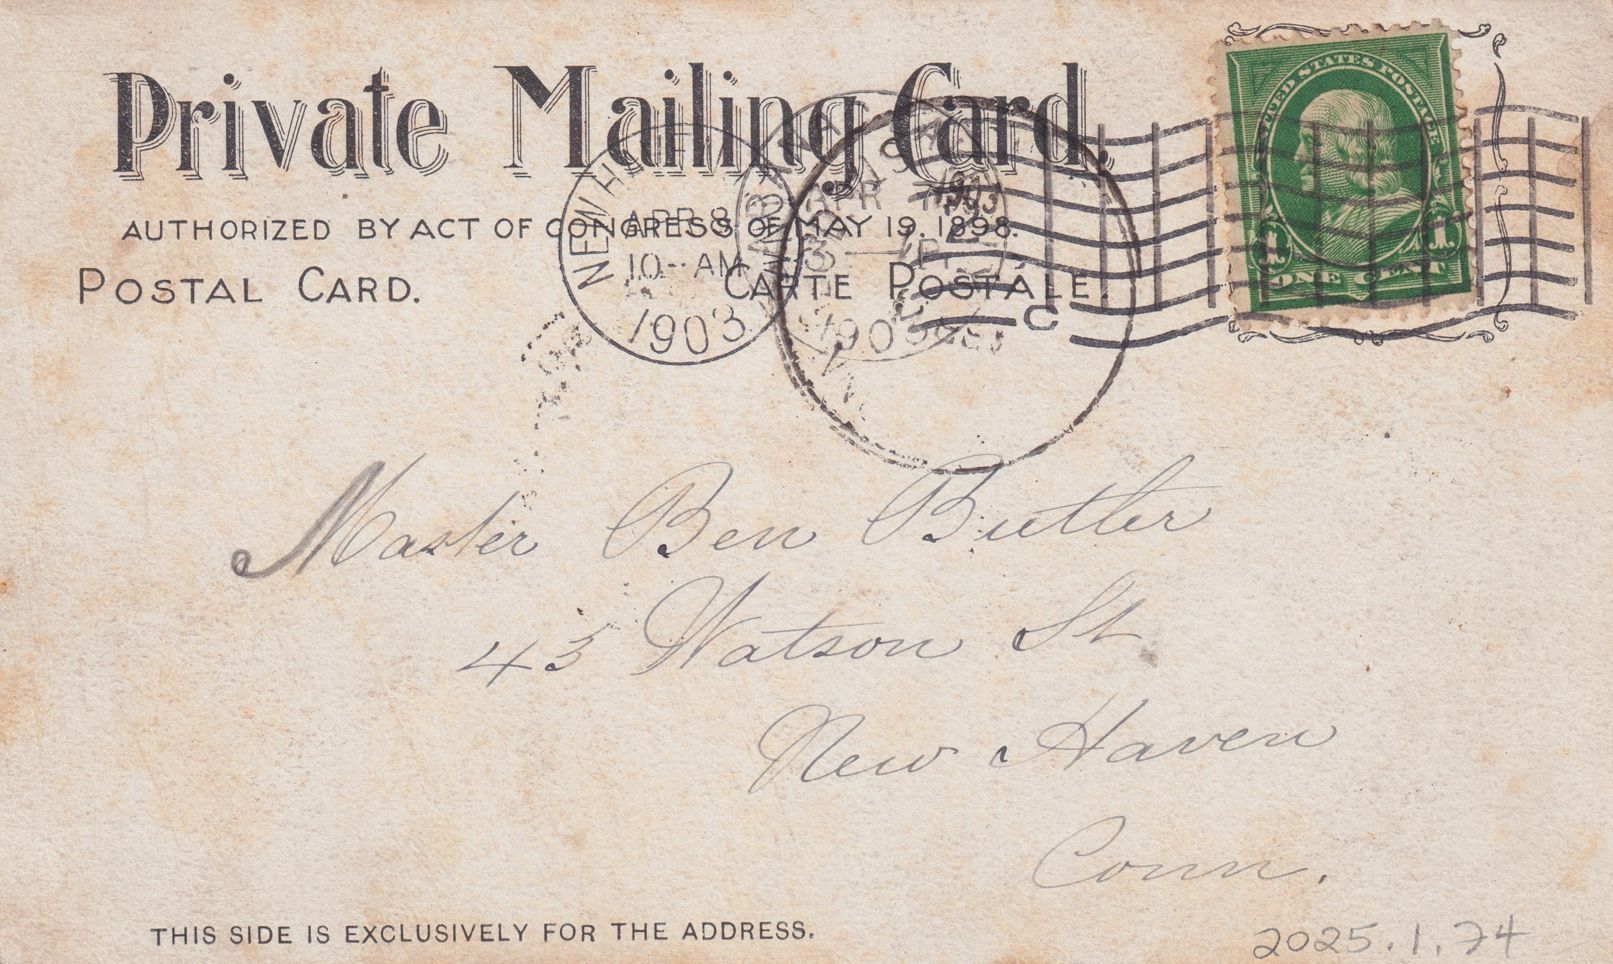 Private Mailing Card.
AUTHORIZED BY ACT OF CONGRESS OF MAY 19, 1898.
POSTAL CARD. CARTE POSTALE.
NEW HAVEN
APR 8
10-AM
1903
APR
1903
C
UNITED STATES POSTAGE
1 1
ONE CENT
Master Ben Butler
43 Watson St
New Haven
Conn.
THIS SIDE IS EXCLUSIVELY FOR THE ADDRESS.
2025.1.74